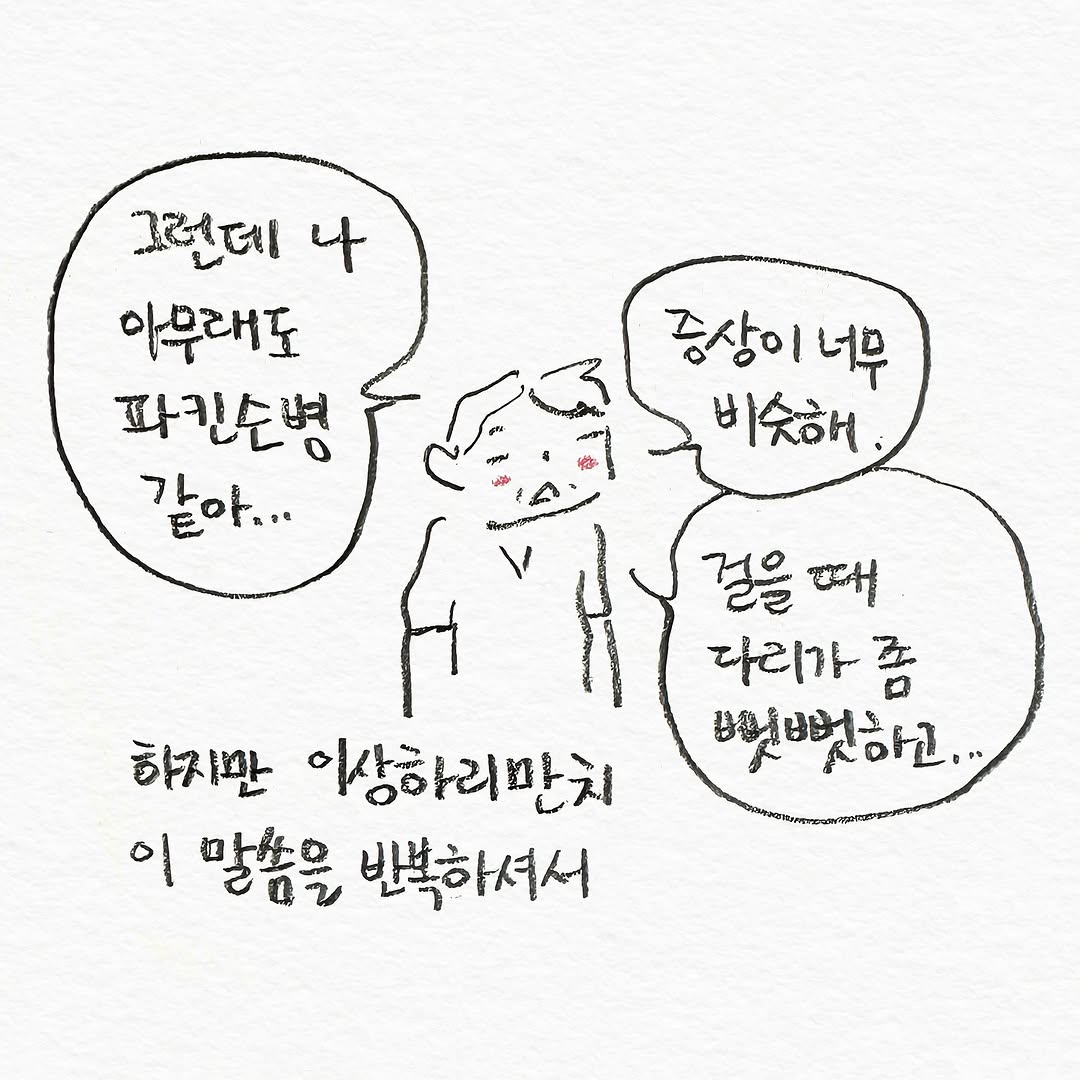 그런데 나
아무래도
파킨슨병
같아...
증상이 너무
비슷해.
걸을 때
다리가 좀
뻣뻣하고...
하지만 이상하리만치
이 말씀을 반복하셔서